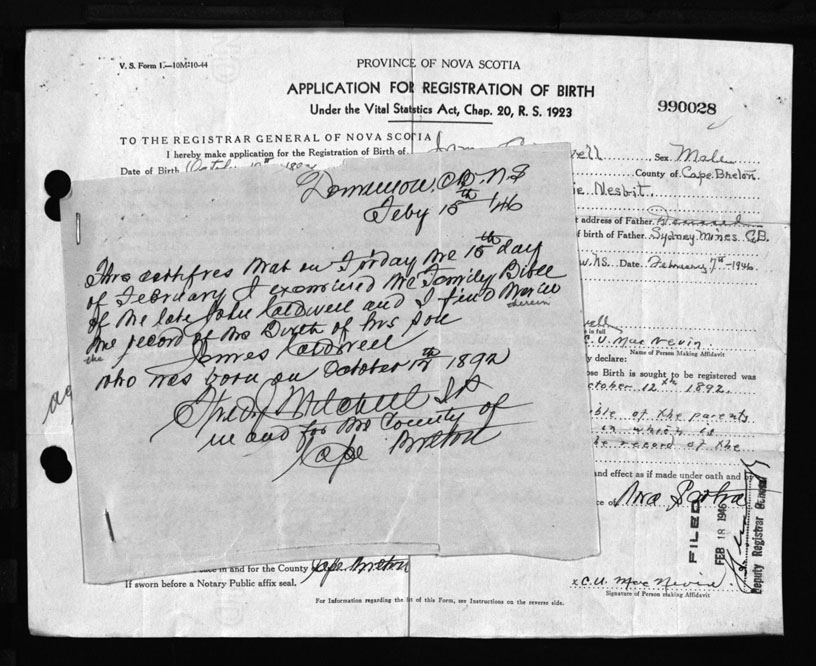 V. S. Form 1.—10M:10-44
PROVINCE OF NOVA SCOTIA
APPLICATION FOR REGISTRATION OF BIRTH
Under the Vital Statistics Act, Chap. 20, R. S. 1923
990028
TO THE REGISTRAR GENERAL OF NOVA SCOTIA
I hereby make application for the Registration of Birth of Sex Male
Date of Birth County of Cape Breton
Nesbit.
address of Father Deceased
of birth of Father Sydney Mines C.B.
N.S. Date. February 7th 1946
is full
C. U. MacNevin.
Name of Person Making Affidavit
declare:
ose Birth is sought to be registered was
ctober 12th 1892.
ble of the parents
in which is
he record of the
and effect as if made under oath and by
ce of Nova Scotia
FILED
FEB 18 1946
Deputy Registrar General
Dominion, C.B. N.S
Feby 15th /46
This certifies that on Friday the 15th day
of February I examined the Family Bible
of the late John Caldwell and I find therein
therein
the record of the Birth of his son
the
James Caldwell
who was born on October 12th 1892
Mitchell
in and for the County of
Cape Breton
in and for the County Cape Breton
If sworn before a Notary Public affix seal.
x C. U. MacNevin
Signature of Person making Affidavit
For Information regarding the of this Form, see Instructions on the reverse side.